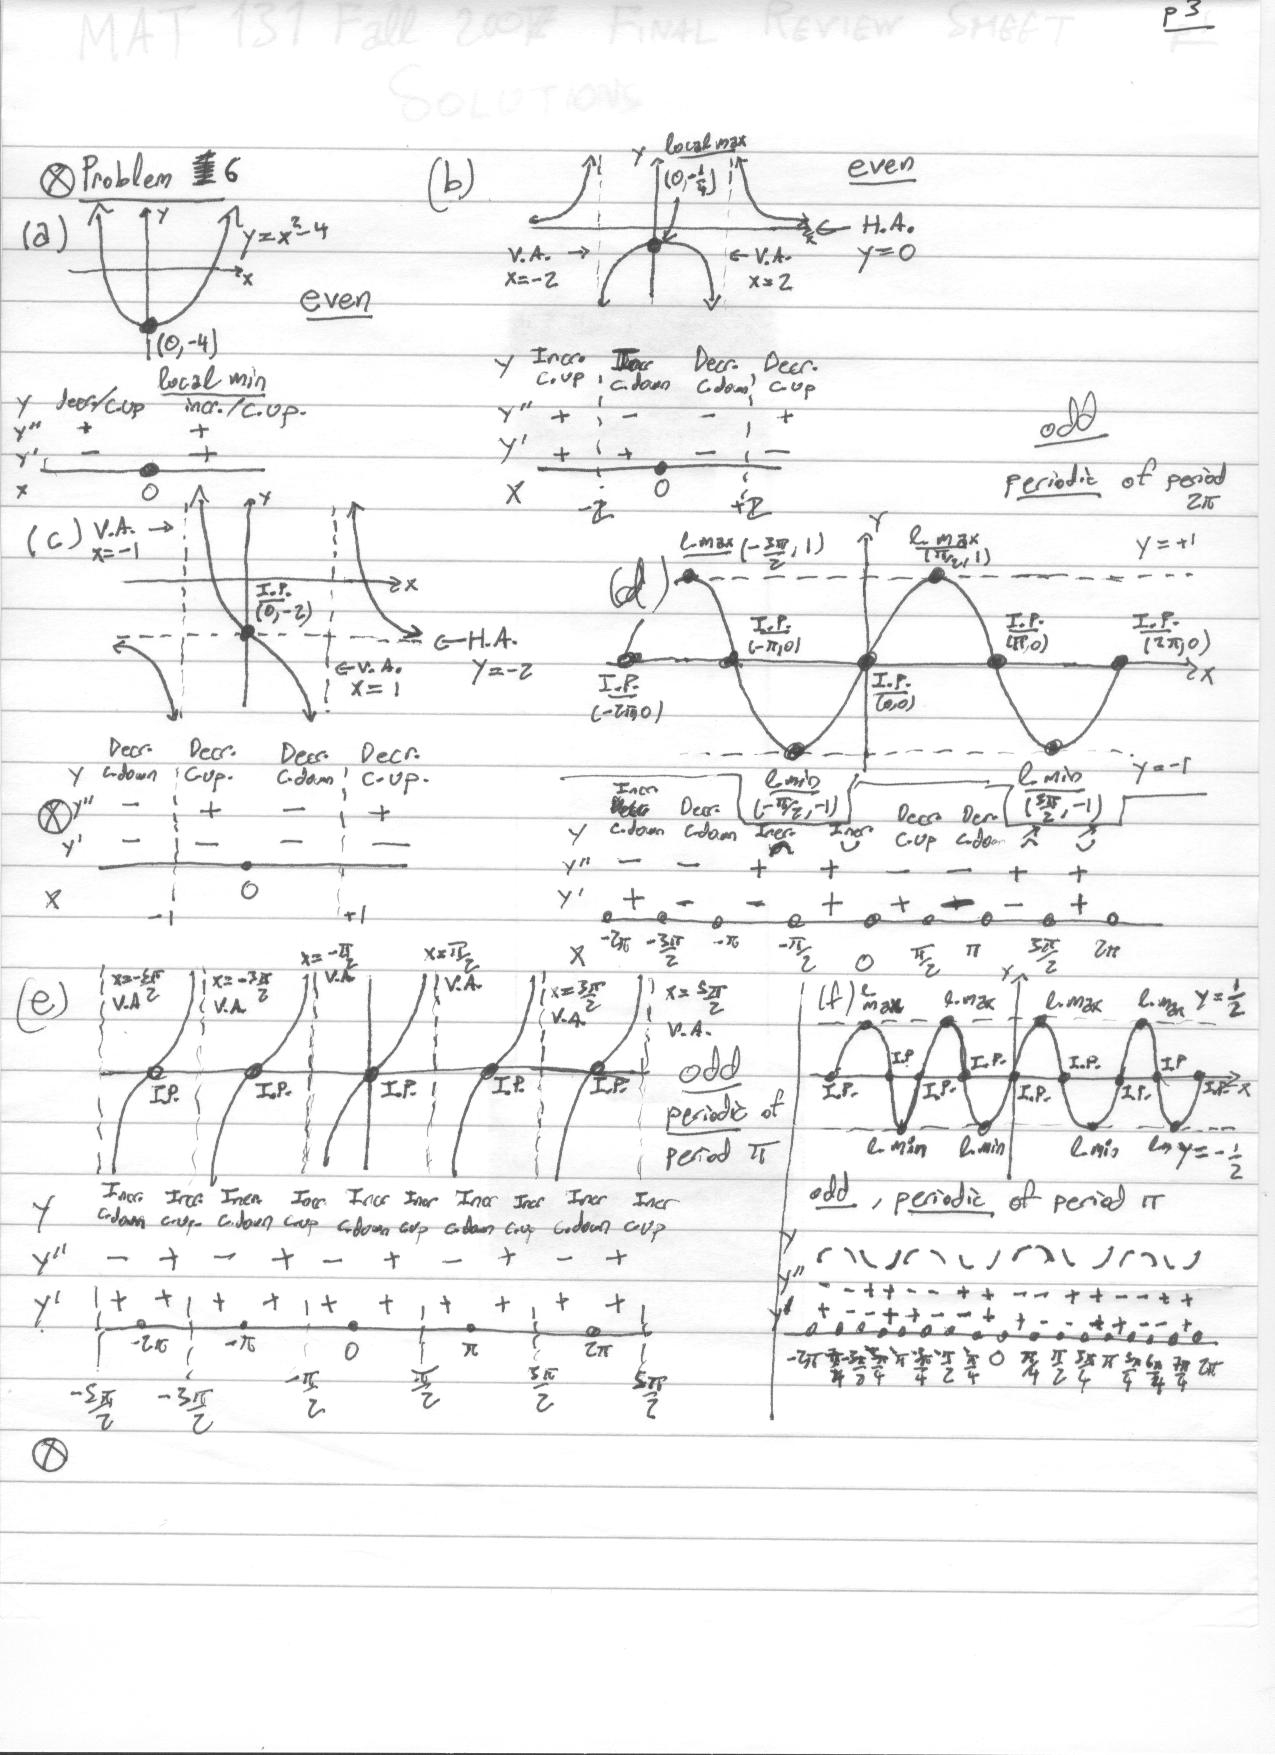 p3
MAT 131 Fall 2007 FINAL REVIEW SHEET
SOLUTIONS
Problem 6
(a)
y
y=x²-4
x
even
(0,-4)
local min
y decr/c.up incr./c.up.
y'' + +
y' - +
x 0
(b)
y
local max
(0,-1/4)
even
x
H.A.
y=0
V.A.
x=-2
V.A.
x=2
y Incr. c.up Incr c.down Decr. c.down Decr. c.up
y'' + - - +
y' + + - -
x -2 0 +2
(c)
V.A.
x=-1
y
x
I.P.
(0,-2)
H.A.
y=-2
V.A.
x=1
y Decr. c.down Decr. c.up. Decr. c.down Decr. c.up.
y'' - + - +
y' - - - -
x -1 0 +1
odd
periodic of period
2π
(d)
l.max (-3π/2, 1)
y
l.max
(π/2, 1)
y=+1
I.P.
(-π,0)
I.P.
(π,0)
I.P.
(2π,0)
x
I.P.
(-2π,0)
I.P.
(0,0)
y=-1
l.min
(-π/2,-1)
l.min
(3π/2,-1)
y Incr c.down Decr. c.down Incr. Incr Decr c.up Decr c.down
y'' - - + + - - + +
y' + - - + + - +
x -2π -3π/2 -π -π/2 0 π/2 π 3π/2 2π
(e)
x=-5π/2
V.A
x=-3π/2
V.A.
x=-π/2
V.A.
x=π/2
V.A.
x=3π/2
V.A.
x=5π/2
V.A.
I.P. I.P. I.P. I.P. I.P.
odd
periodic of
period π
y Incr c.down Incr. c.up. Incr. c.down Incr c.up Incr c.down Incr c.up Incr c.down Incr c.up Incr c.down Incr c.up
y'' - + - + - + - + - +
y' + + + + + + + + + +
-2π -π 0 π 2π
-5π/2 -3π/2 -π/2 π/2 3π/2 5π/2
(f)
l max l.max y l.max l.max y=1/2
I.P. I.P I.P. I.P. I.P. I.P. I.P. I.P I.P. x
l.min l.min l.min y=-1/2
odd, periodic of period π
y
y'' - - + + - - + + - - + + - - + +
-2π 0 π/4 π/2 3π/4 π 5π/4 6π/4 7π/4 2π